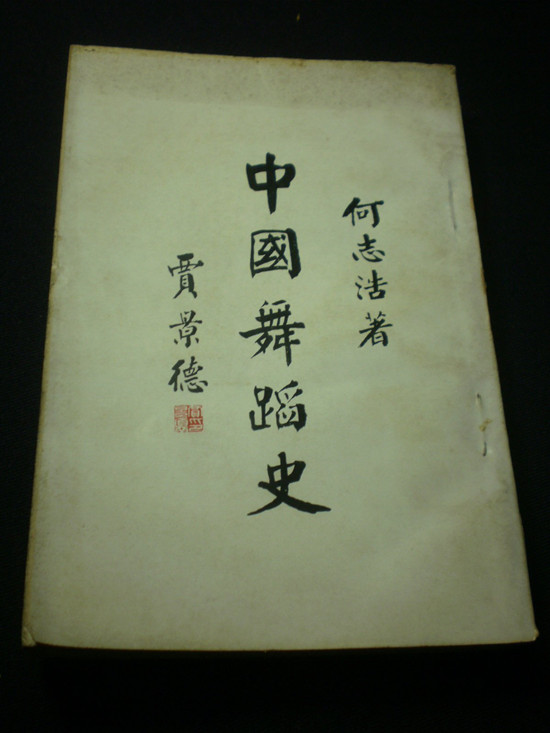 何志浩著
中國舞蹈史
賈景德